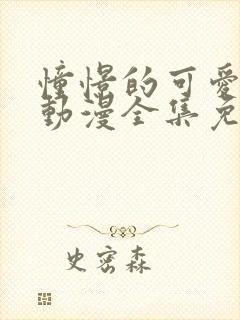 憧憬的可愛
動漫全集免
史密森